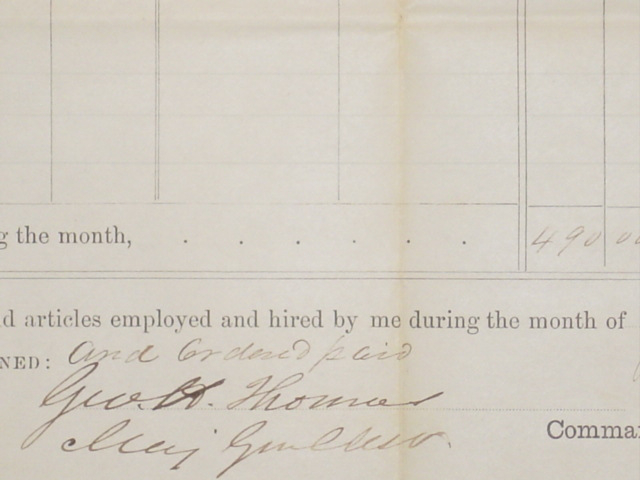 g the month, . . . . . . 490 00
d articles employed and hired by me during the month of
NED: and Ordered paid
Geo. H. Thomas
Maj Genl
Comma